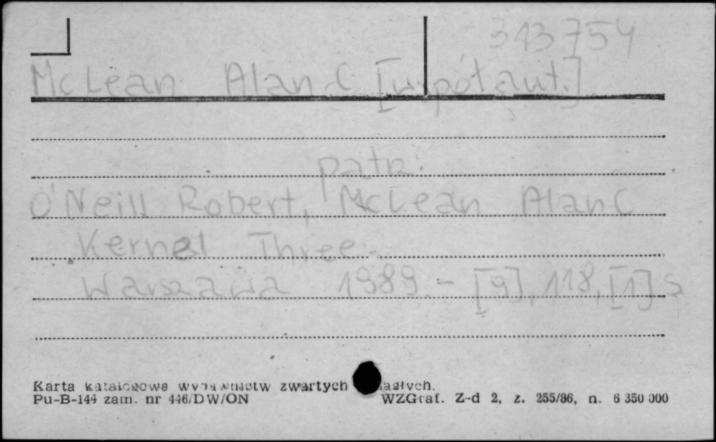 313754
McLean Alan C [współaut.]
patrz:
O'Neill Robert, McLean Alan C
Kernel Three.
Warszawa 1989. - [9], 118, [1] s
Karta katalogowa wydawnictw zwartych
Pu-B-144 zam. nr 446/DW/ON WZGraf. Z-d 2, z. 255/86, n. 6 350 000